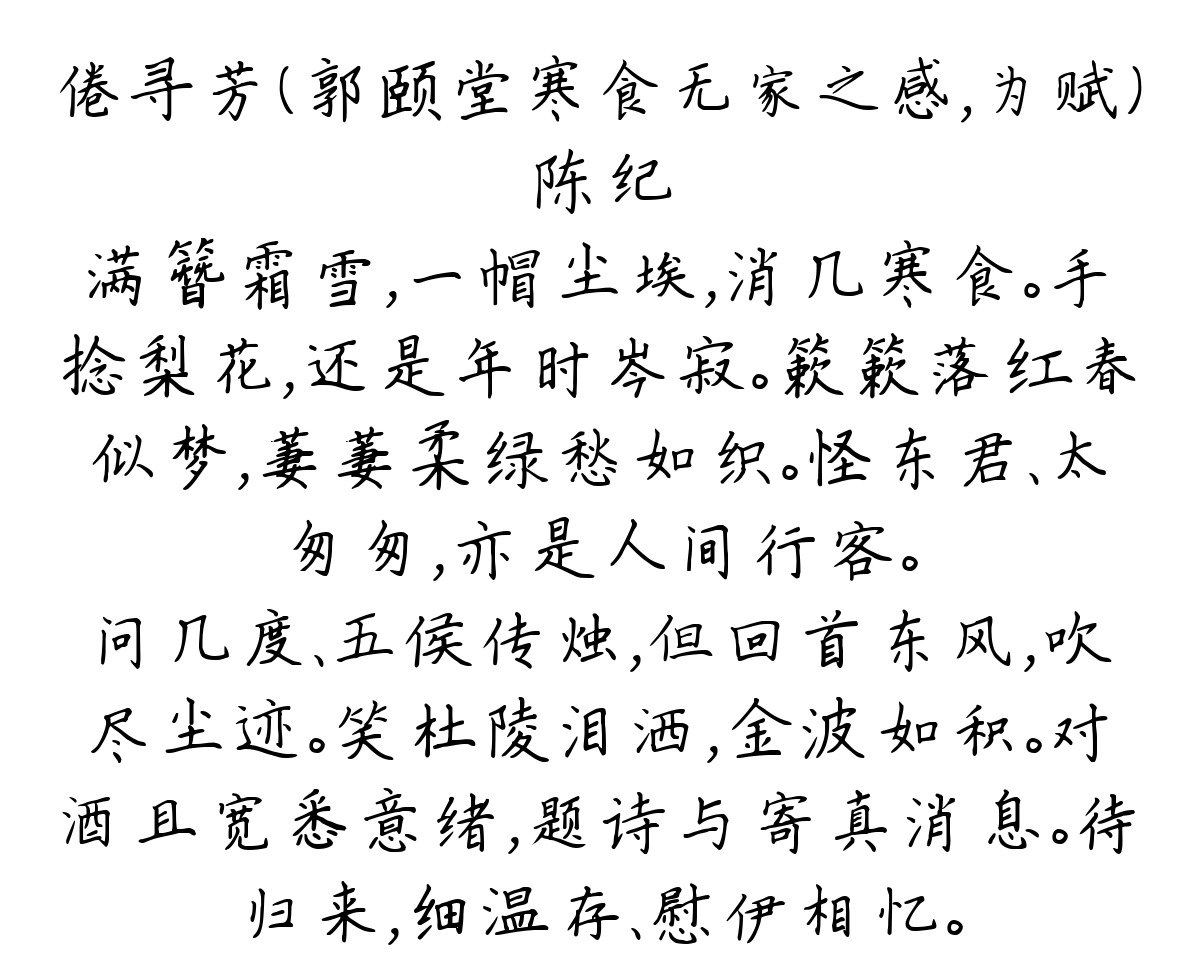 倦寻芳(郭颐堂寒食无家之感,为赋)
陈纪
满簪霜雪,一帽尘埃,消几寒食。手
捻梨花,还是年时岑寂。簌簌落红春
似梦,萋萋柔绿愁如织。怪东君、太
匆匆,亦是人间行客。
问几度、五侯传烛,但回首东风,吹
尽尘迹。笑杜陵泪洒,金波如积。对
酒且宽悉意绪,题诗与寄真消息。待
归来,细温存、慰伊相忆。